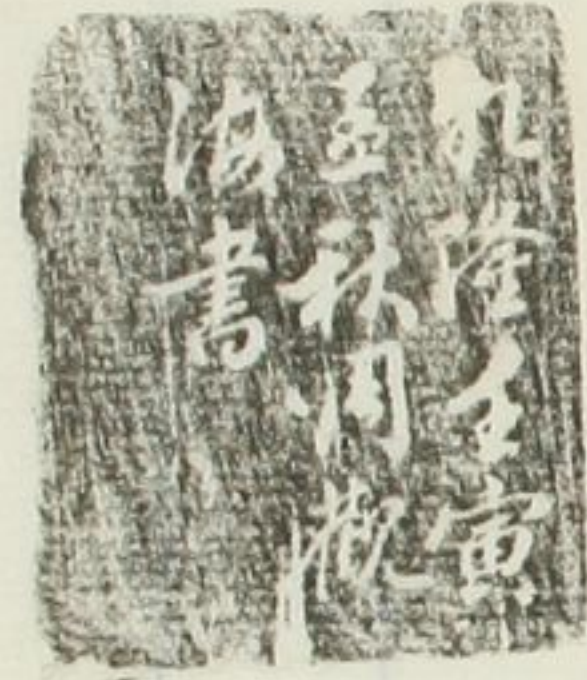 乾隆壬寅
孟秋周觀
海書